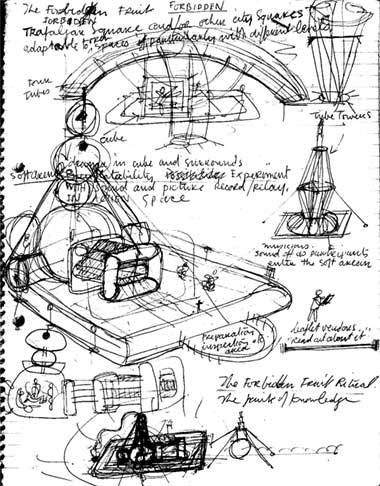 The Forbidden Fruit FORBIDDEN
FORBIDDEN
Trafalgar Square and/or other city squares
adaptable to spaces of particularity with different levels
Tube
Cube
Tube Towers
in cube and surrounds
soft arena Experiment
WITH sound and picture record/relay.
IN Space
musicians.
sound as participants
enter the soft arena
leaflet vendors..
"Read out about it"
preparation
inspection
area
The Forbidden Fruit Ritual.
The fruits of Knowledge